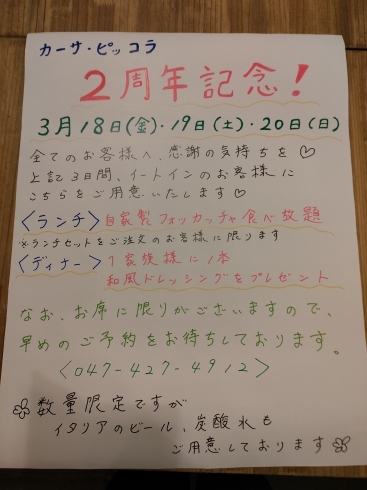 カーサ・ピッコラ
2周年記念！
3月18日(金)・19日(土)・20日(日)
全てのお客様へ、感謝の気持ちを♡
上記3日間、イートインのお客様に
こちらをご用意いたします♡
〈ランチ〉自家製フォッカッチャ食べ放題
※ランチセットをご注文のお客様に限ります
〈ディナー〉1家族様に1本
和風ドレッシングをプレゼント
なお、お席に限りがございますので、
早めのご予約をお待ちしております。
〈047-427-4912〉
数量限定ですが
イタリアのビール、炭酸水も
ご用意しております